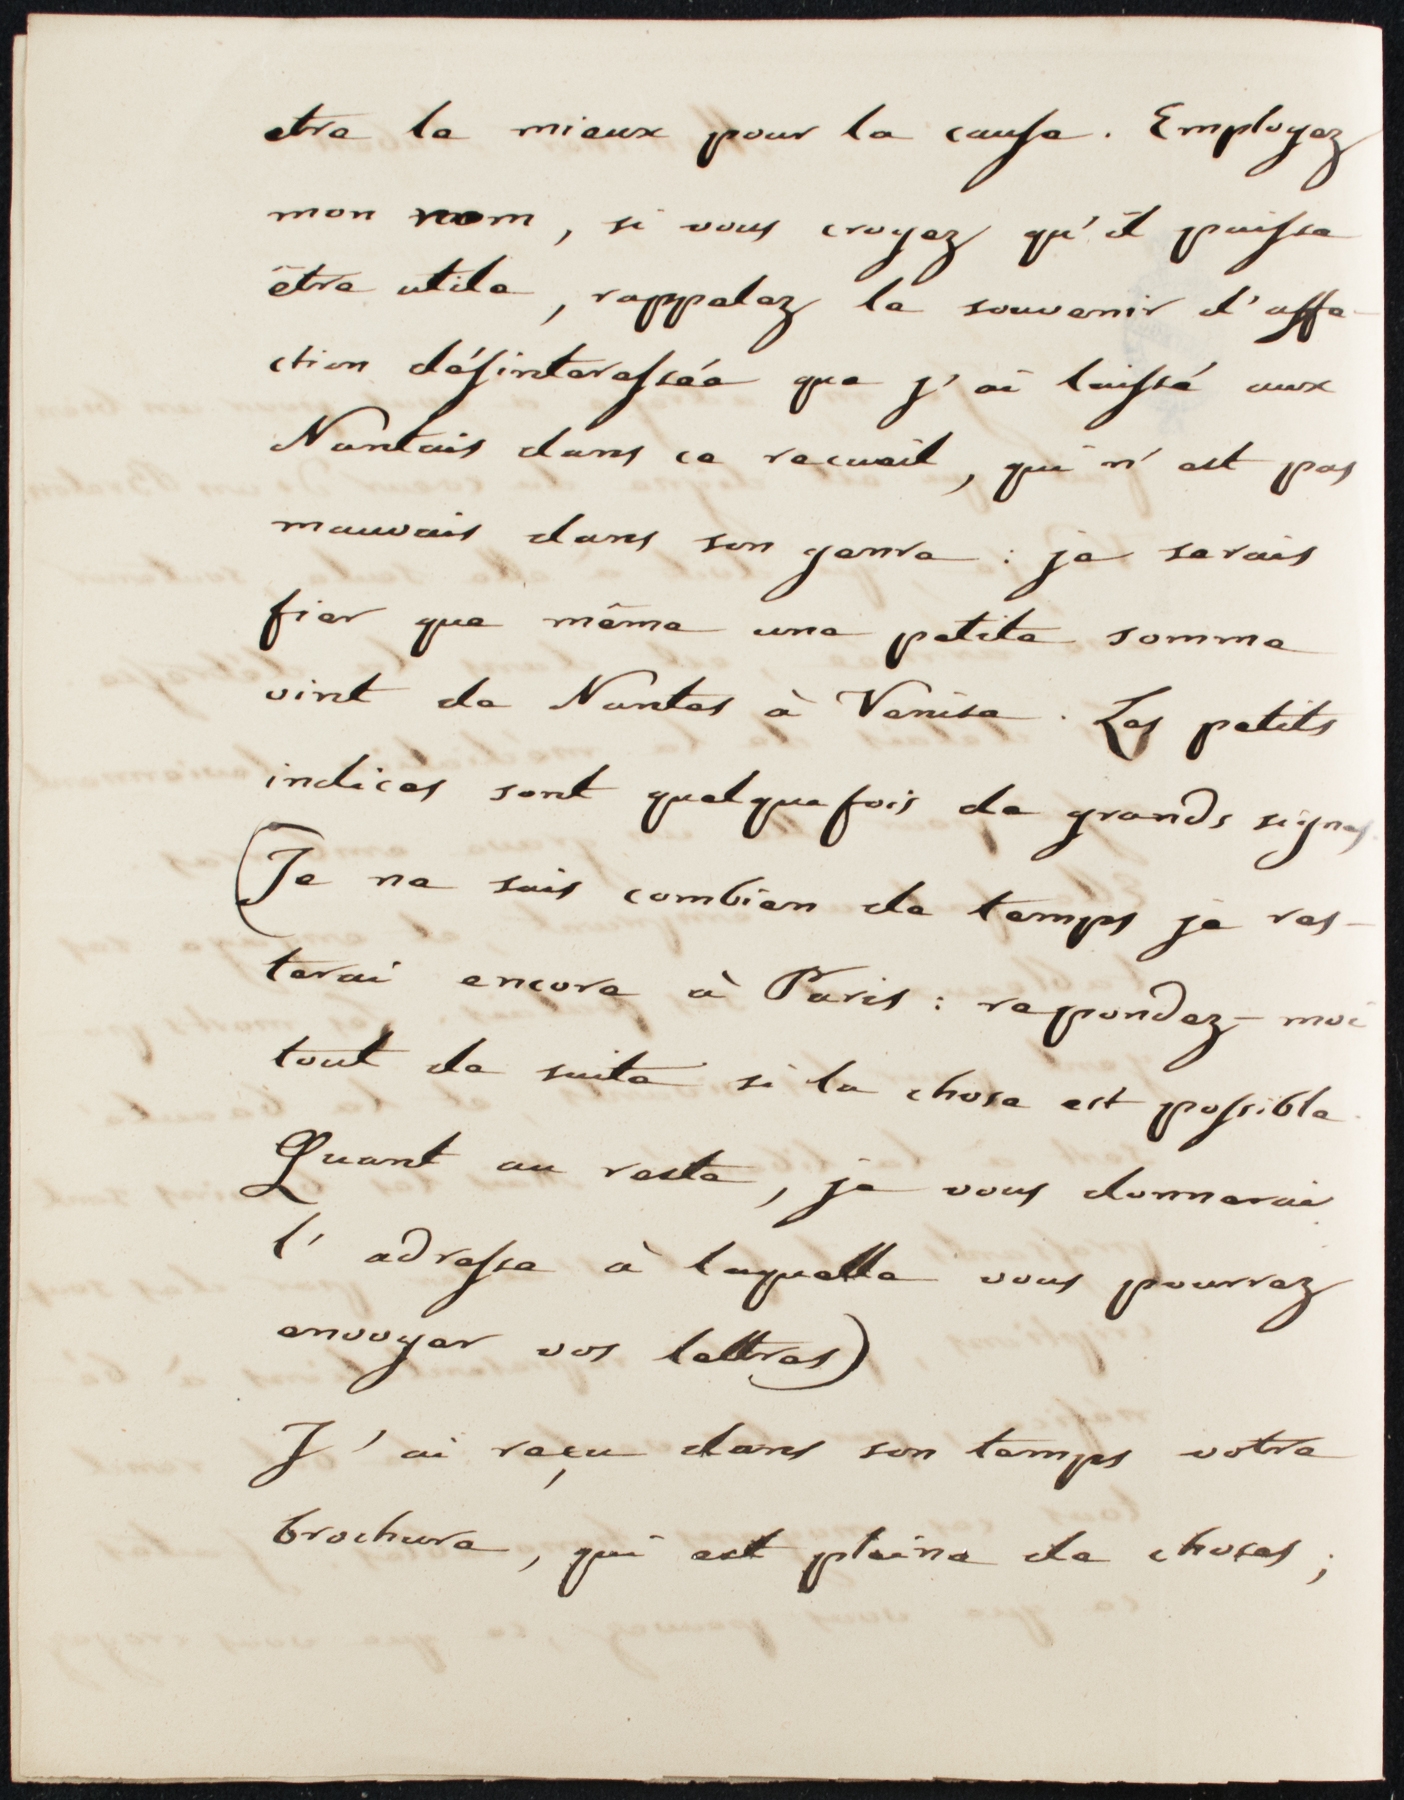 etre le mieux pour la cause. Employez
mon nom, si vous croyez qu'il puisse
être utile, rappelez le souvenir d'affe-
ction désinteressée que j'ai laissé aux
Nantais dans ce recueil, qui n'est pas
mauvais dans son genre : je serais
fier que même une petite somme
vint de Nantes à Venise. Les petits
indices sont quelquefois de grands signes.
(Je ne sais combien de temps je res-
terai encore à Paris : repondez-moi
tout de suite si la chose est possible.
Quant au reste, je vous donnerai
l'adresse à laquelle vous pourrez
envoyer vos lettres)
J'ai reçu dans son temps votre
brochure, qui est pleine de choses ;